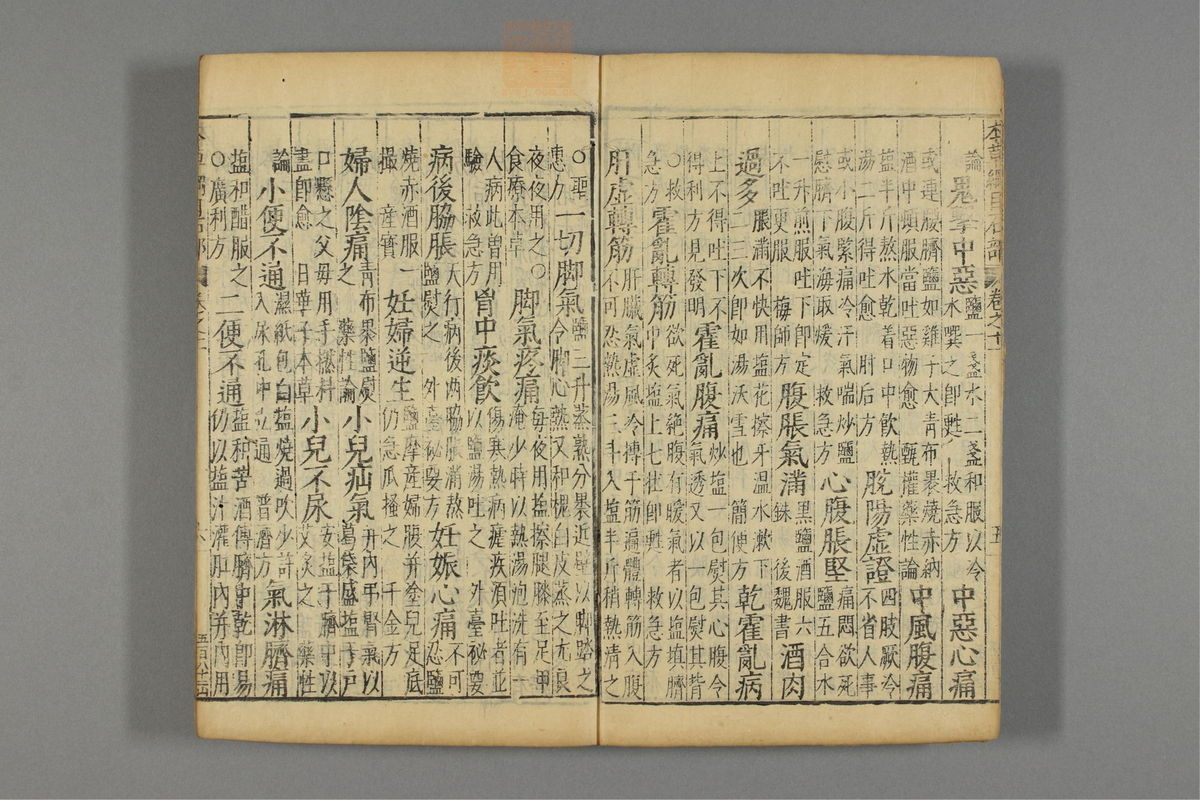 本草綱目石部 卷之十一 五
論 鬼擊中惡 鹽一盞水二盞和服以冷水噀之即甦 救急方 中惡心痛
或連腰臍鹽如雞子大青布裹燒赤納酒中頓服當吐惡物愈 甄權藥性論 中風腹痛
塩半斤熬水乾着口中飲熱湯二斤得吐愈 肘后方 脫陽虛證 四肢厥冷不省人事
或小腹緊痛冷汗氣喘炒鹽熨臍下氣海取煖 救急方 心腹脹堅 痛悶欲死鹽五合水
一升煎服吐下即定不吐更服 梅師方 腹脹氣滿 黑鹽酒服六銖 後魏書 酒肉
過多 脹滿不快用塩花擦牙溫水漱下二三次即如湯沃雪也 簡便方 乾霍亂病
上不得吐下不得利方見發明 霍亂腹痛 炒塩一包熨其心腹令氣透又以一包熨其背
○救急方 霍亂轉筋 欲死氣絶腹有暖氣者以塩填臍中灸塩上七壮即甦 救急方
肝虛轉筋 肝臟氣虛風冷搏于筋遍體轉筋入腹不可忍熱湯三斗入塩半斤稍熱漬之
○聖惠方 一切脚氣 鹽三升蒸熱分裹近壁以脚踏之令脚心熱又和槐白皮蒸之尤良
夜夜用之○食療本草 脚氣疼痛 每夜用塩擦腿膝至足甲淹少時以熱湯泡洗有一
人病此曽用驗 救急方 胷中痰飲 傷寒熱病瘧疾須吐者並以鹽湯吐之 外臺祕要
病後脇脹 天行病後兩脇脹滿熬鹽熨之 外臺祕要方 妊娠心痛 不可忍鹽
燒赤酒服一撮 産寳 妊婦逆生 鹽摩産婦腹并塗兒足底仍急爪搔之 千金方
婦人陰痛 青布裹鹽熨之 藥性論 小兒疝氣 并內弔腎氣以葛袋盛塩于戶
口懸之父母用手撚料盡即愈 日華子本草 小兒不尿 安塩于臍中以艾灸之 藥性
論 小便不通 濕紙包白塩燒過吹少許入尿孔中立通 普濟方 氣淋臍痛
塩和醋服之○廣利方 二便不通 塩和苦酒傅臍中乾即易仍以塩汁灌肛內并內用
六